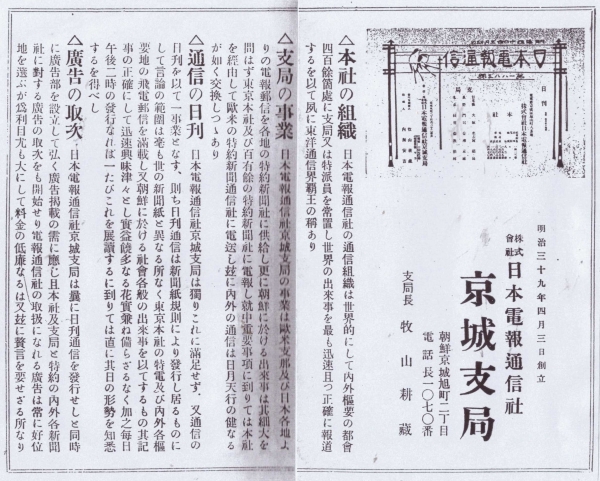 日本電報通信
日刊
本社
支局
明治三十九年四月三日創立
株式會社 日本電報通信社
京城支局
朝鮮京城旭町二丁目
電話長一〇七〇番
支局長 牧山耕藏
△本社の組織 日本電報通信社の通信組織は世界的にして内外樞要の都會
四百餘箇處に支局又は特派員を常置し世界の出來事を最も迅速且つ正確に報道
するを以て夙に東洋通信界覇王の稱あり
△支局の事業 日本電報通信社京城支局の事業は歐米支那及び日本各地よ
りの電報郵信を各地の特約新聞社に供給し更に朝鮮に於ける出來事は其細大を
問はず東京本社及び百有餘の特約新聞社に電報し就中重要事項に到りては本社
を經由して歐米の特約新聞通信社に電送し玆に内外の通信は日月天行の健なる
が如く交換しつゝあり
△通信の日刊 日本電報通信社京城支局は獨りこれに滿足せず、又通信の
日刊を以て一事業となす、則ち日刊通信は新聞紙規則により發行し居るものに
して言論の範圍は毫も世の新聞紙と異なる所なく東京本社の特電及び内外各樞
要地の飛電郵信を滿載し又朝鮮に於ける社會各般の出來事を以てするもの其記
事の正確にして迅速興味津々とし實益饒多なる花實兼ね備らざるなく加之毎日
午後二時の發行なれば一たびこれを展讀するに到りては直に其日の形勢を知悉
するを得べし
△廣告の取次 日本電報通信社京城支局は曩に日刊通信を發行せしと同時
に廣告部を設立して弘く廣告揭載の需に應じ且本社及支局と特約の内外各新聞
社に對する廣告の取次をも開始せり電報通信社の取扱になれる廣告は常に好位
地を選ぶが爲利目尤も大にして料金の低廉なるは又玆に贅言を要せざる所なり